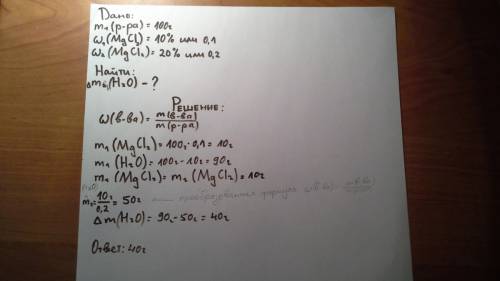 Дано:
m₁(р-ра) = 100г
ω₁(MgCl₂) = 10% или 0,1
ω₂(MgCl₂) = 20% или 0,2
Найти:
Δm(H₂O) - ?
Решение:
ω(в-ва) = m(в-ва)/m(р-ра)
m₁(MgCl₂) = 100г · 0,1 = 10г
m₁(H₂O) = 100г - 10г = 90г
m₁(MgCl₂) = m₂(MgCl₂) = 10г
m₂ = 10г/0,2 = 50г формула ω(в-ва) = m(в-ва)/m(р-ра)
Δm(H₂O) = 90г - 50г = 40г
Ответ: 40г